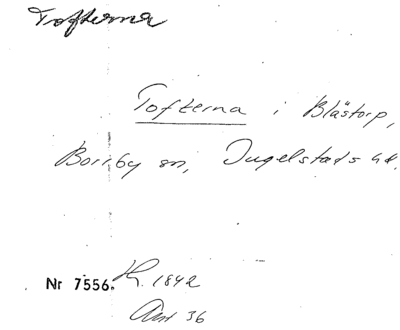 Tofterna
Tofterna i Blästorp,
Borrby sn, Ingelstads hd.
Nr 7556. K. 1842
Ant 36